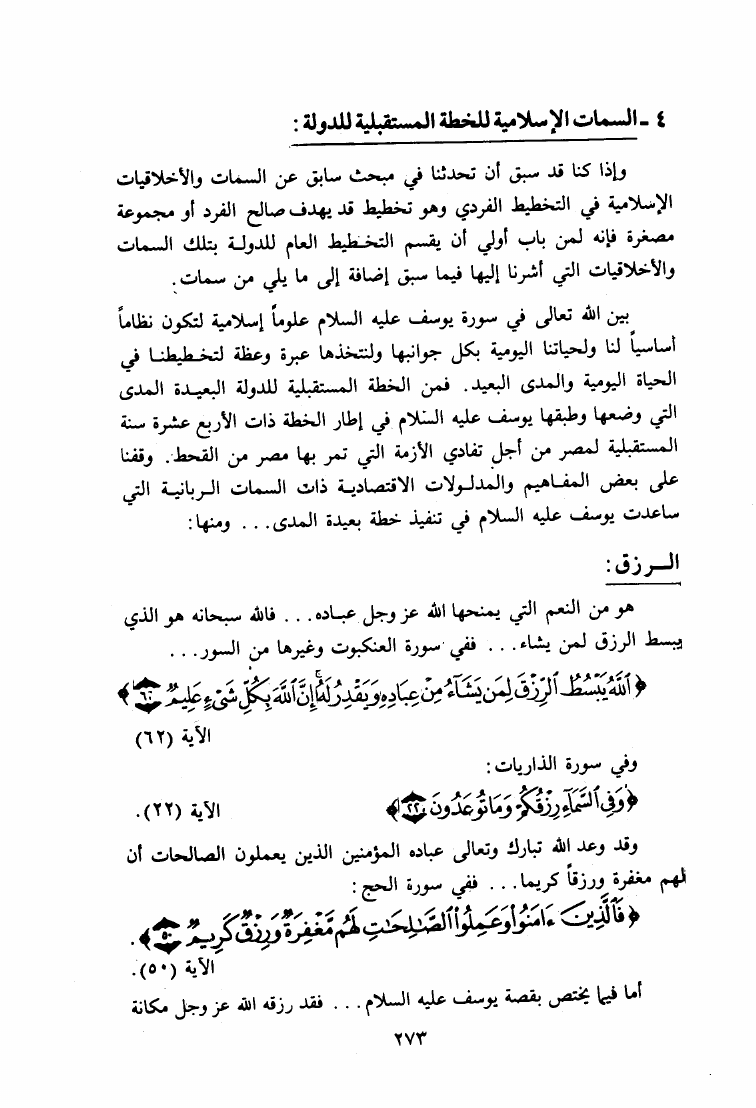 ٤ - السمات الإسلامية للخطة المستقبلية للدولة :
وإذا كنا قد سبق أن تحدثنا في مبحث سابق عن السمات والأخلاقيات
الإسلامية في التخطيط الفردي وهو تخطيط قد يهدف صالح الفرد أو مجموعة
مصغرة فإنه لمن باب أولي أن يقسم التخطيط العام للدولة بتلك السمات
والأخلاقيات التي أشرنا إليها فيما سبق إضافة إلى ما يلي من سمات .
بين الله تعالى في سورة يوسف عليه السلام علوماً إسلامية لتكون نظاماً
أساسياً لنا ولحياتنا اليومية بكل جوانبها ولنتخذها عبرة وعظة لتخطيطنا في
الحياة اليومية والمدى البعيد . فمن الخطة المستقبلية للدولة البعيدة المدى
التي وضعها وطبقها يوسف عليه السلام في إطار الخطة ذات الأربع عشرة سنة
المستقبلية لمصر من أجل تفادي الأزمة التي تمر بها مصر من القحط . وقفنا
على بعض المفاهيم والمدلولات الاقتصادية ذات السمات الربانية التي
ساعدت يوسف عليه السلام في تنفيذ خطة بعيدة المدى . . . ومنها :
الرزق :
هو من النعم التي يمنحها الله عز وجل عباده . . . فالله سبحانه هو الذي
يبسط الرزق لمن يشاء . . . ففي سورة العنكبوت وغيرها من السور . . .
﴿ ٱللَّهُ يَبْسُطُ ٱلرِّزْقَ لِمَن يَشَآءُ مِنْ عِبَادِهِ وَيَقْدِرُ لَهُ إِنَّ ٱللَّهَ بِكُلِّ شَىْءٍ عَلِيمٌ ﴾
الآية (٦٢)
وفي سورة الذاريات :
﴿ وَفِي ٱلسَّمَآءِ رِزْقُكُمْ وَمَا تُوعَدُونَ ٢٢ ﴾ الآية (٢٢) .
وقد وعد الله تبارك وتعالى عباده المؤمنين الذين يعملون الصالحات أن
لهم مغفرة ورزقاً كريما . . . ففي سورة الحج :
﴿ فَٱلَّذِينَ ءَامَنُوا وَعَمِلُوا ٱلصَّٰلِحَٰتِ لَهُم مَّغْفِرَةٌ وَرِزْقٌ كَرِيمٌ ٥٠ ﴾ .
الآية (٥٠) .
أما فيما يختص بقصة يوسف عليه السلام . . . فقد رزقه الله عز وجل مكانة
٢٧٣